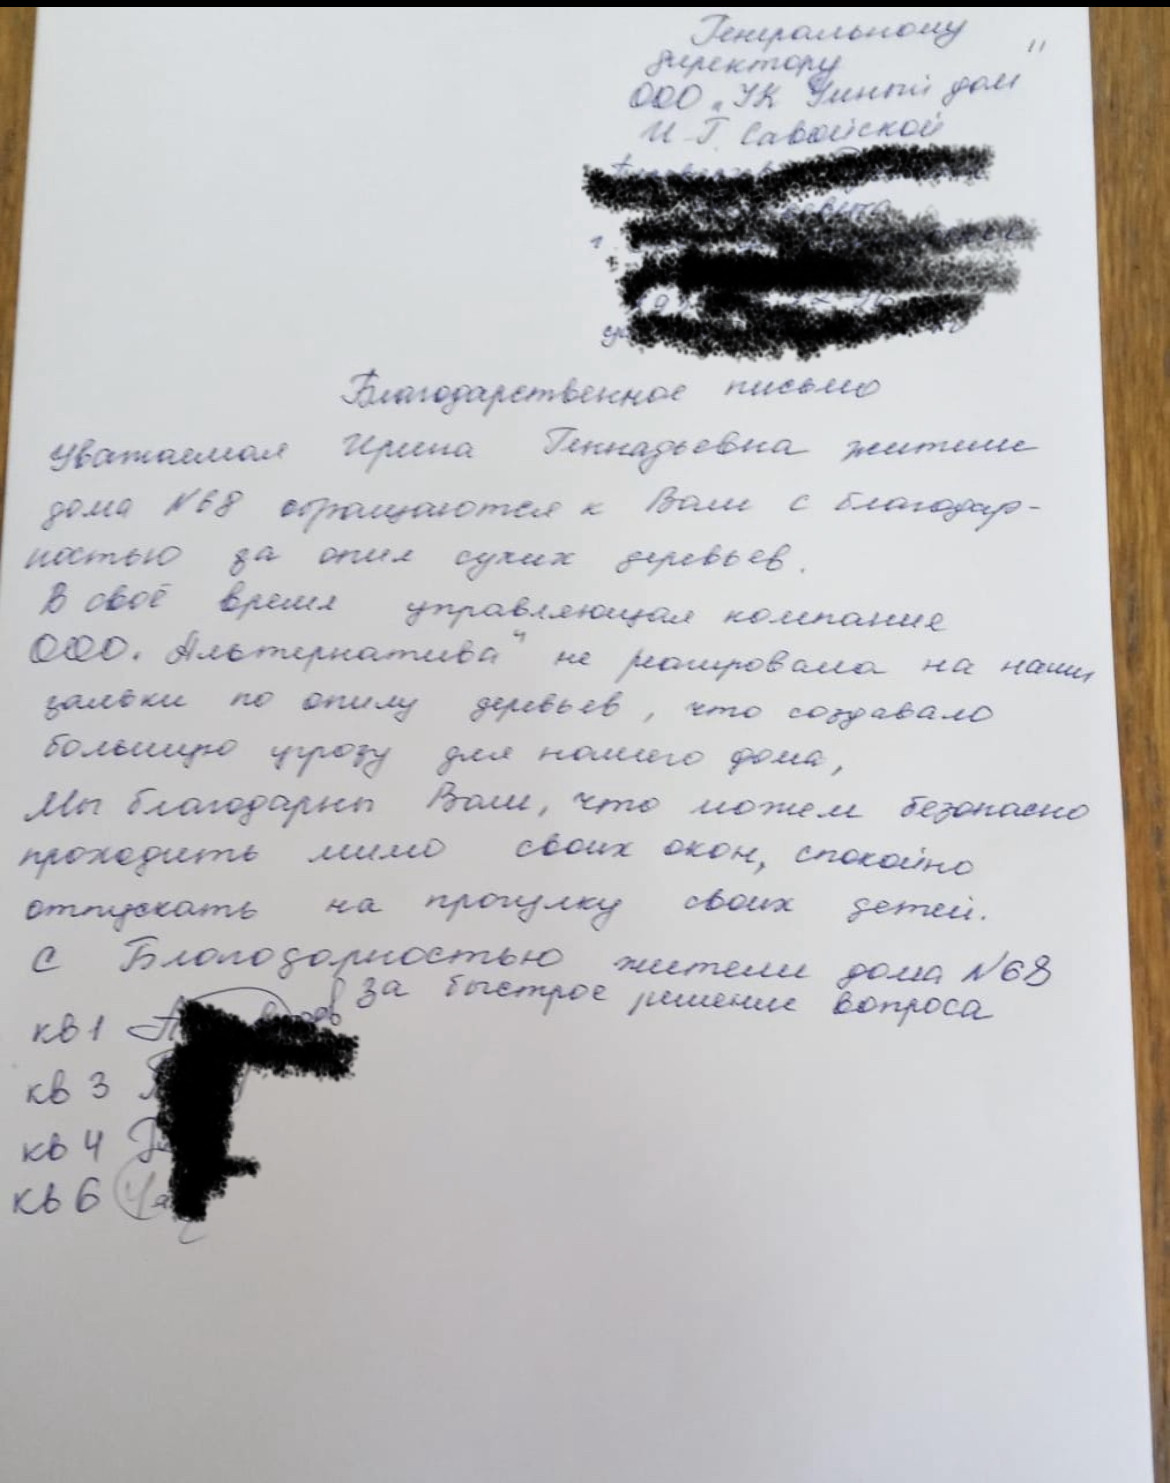 Генеральному
директору
ООО "УК Умный дом"
И.Г. Савойской
Благодарственное письмо
Уважаемая Ирина Геннадьевна жители
дома №68 обращаются к Вам с благодар-
ностью за опил сухих деревьев.
В своё время управляющая компание
ООО "Альтернатива" не реагировала на наши
заявки по опилу деревьев, что создавало
большую угрозу для нашего дома,
Мы благодарны Вам, что можем безопасно
проходить мимо своих окон, спокойно
отпускать на прогулку своих детей.
С Благодарностью жители дома №68
за быстрое решение вопроса
кв 1
кв 3
кв 4
кв 6